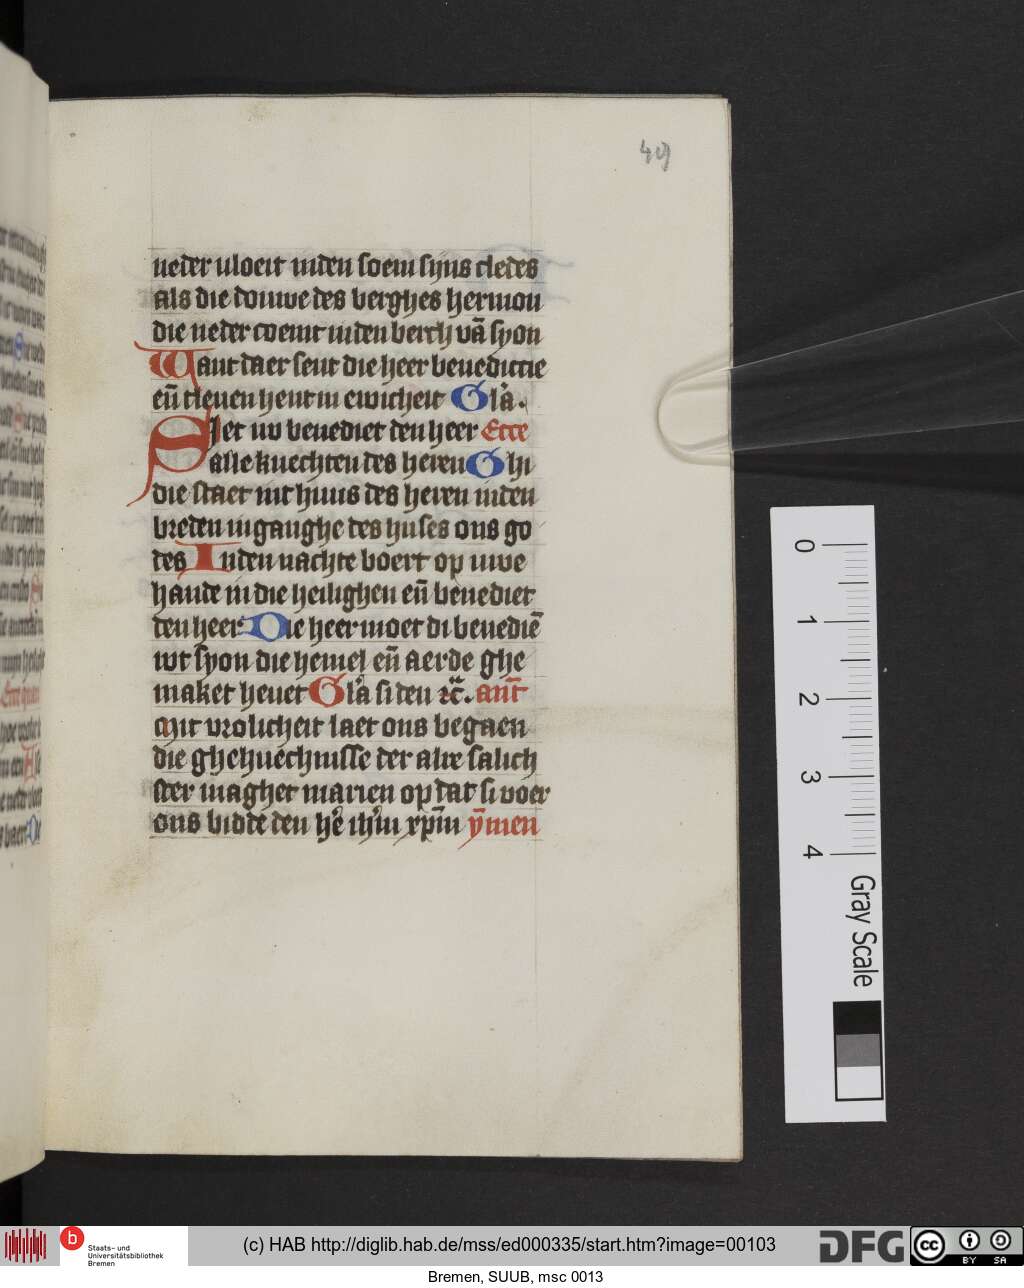 49
neder vloeit inden soem sijns cledes
als die douwe des berghes hermon
die neder coemt inden berch vā syon
Want daer sent die heer benedictie
eñ tleuen hent in ewicheit Gl'a.
Siet nv benediet den heer Ecce
alle knechten des heren Ghi
die staet int huus des heren inden
breden inganghe des huses ons go
des Inden nachte boert op uwe
hande in die heilighen eñ benediet
den heer Die heer moet di benediē
wt syon die hemel eñ aerde ghe
maket heuet Gl'a si den ꝛc̄. ant̄
Mit vrolicheit laet ons begaen
die ghehuechnisse der alre salich
ster maghet marien op dat si voer
ons bidde den h'e ih'm xpm̄ ȳmen
0
1
2
3
4
Gray Scale
b
Staats- und
Universitätsbibliothek
Bremen
(c) HAB http://diglib.hab.de/mss/ed000335/start.htm?image=00103
DFG
cc
BY SA
Bremen, SUUB, msc 0013